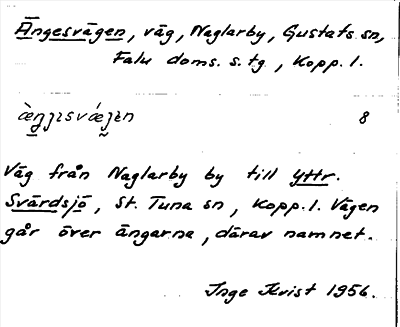 Ängesvägen, väg, Naglarby, Gustafs sn,
Falu doms. s. tg, Kopp. l.
8
Väg från Naglarby by till yttr.
Svärdsjö, St. Tuna sn, Kopp. l. Vägen
går över ängarna, därav namnet.
Inge Kvist 1956.